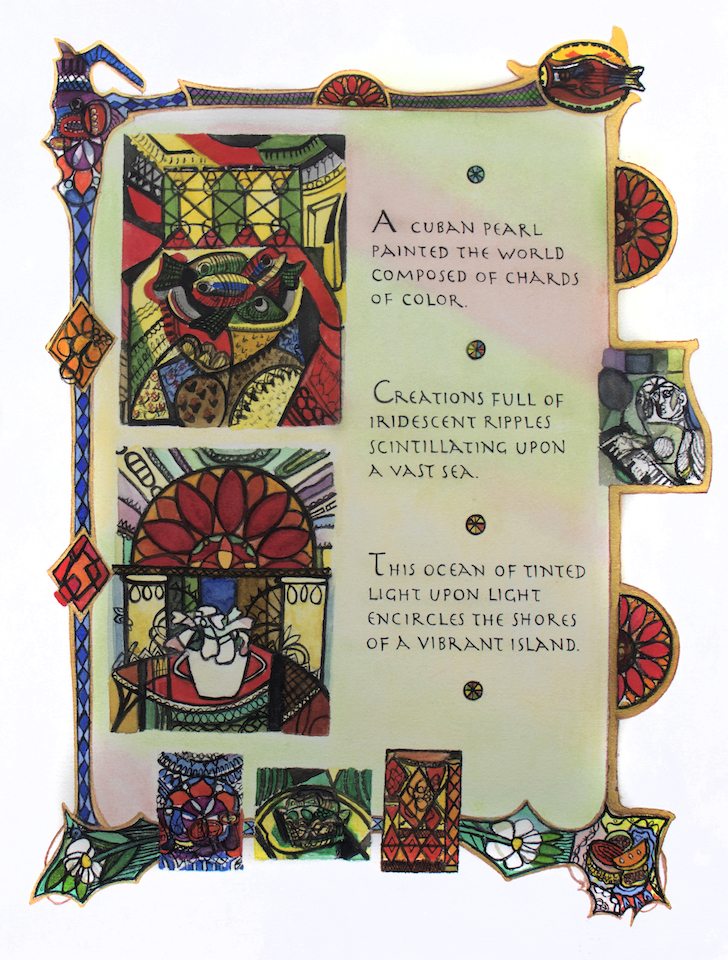 A CUBAN PEARL
PAINTED THE WORLD
COMPOSED OF CHARDS
OF COLOR.
CREATIONS FULL OF
IRIDESCENT RIPPLES
SCINTILLATING UPON
A VAST SEA.
THIS OCEAN OF TINTED
LIGHT UPON LIGHT
ENCIRCLES THE SHORES
OF A VIBRANT ISLAND.